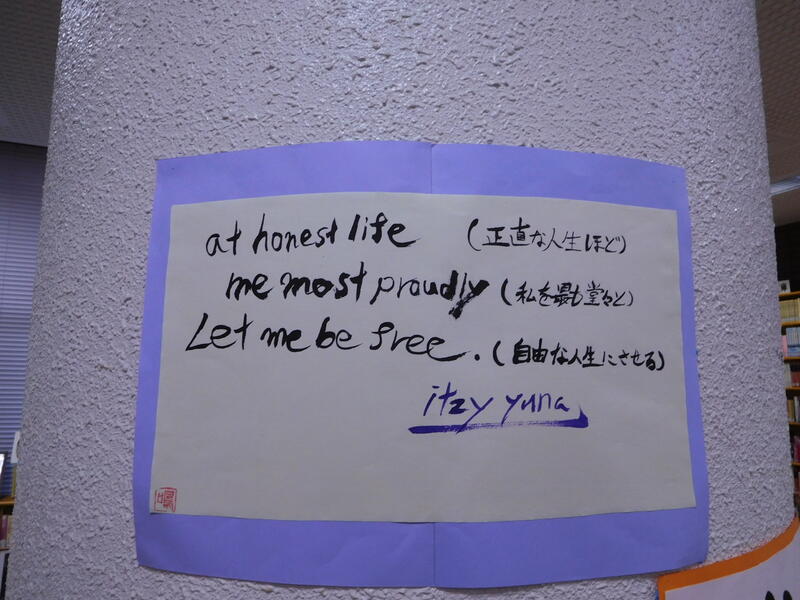 at honest life (正直な人生ほど)
me most proudly (私を最も堂々と)
Let me be free. (自由な人生にさせる)
itzy yuna